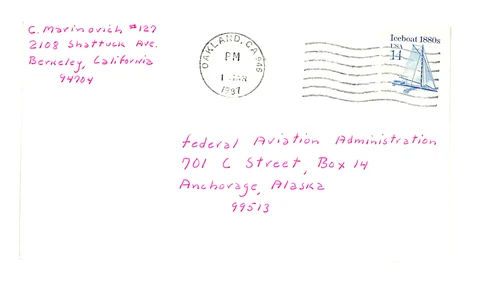 C. Marinovich #127
2108 Shattuck Ave.
Berkeley, California
94704
OAKLAND, CA 946
PM
1987
Iceboat 1880s
USA
14
Federal Aviation Administration
701 C Street, Box 14
Anchorage, Alaska
99513